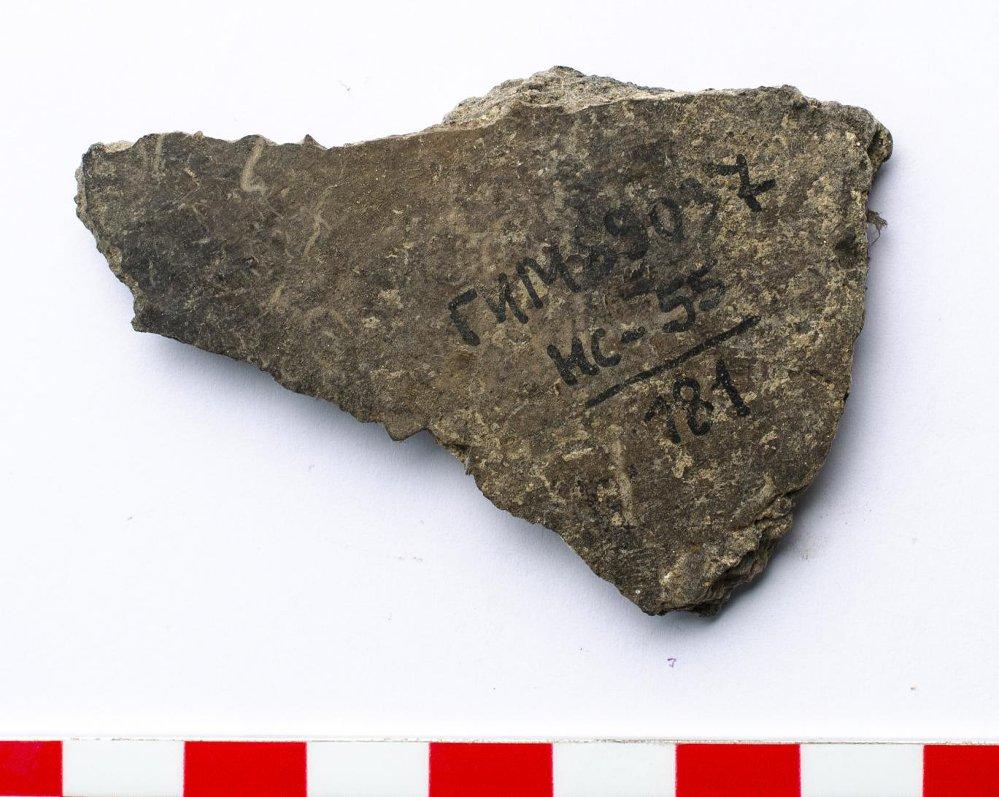 ГИМ 89037
МС-55
181